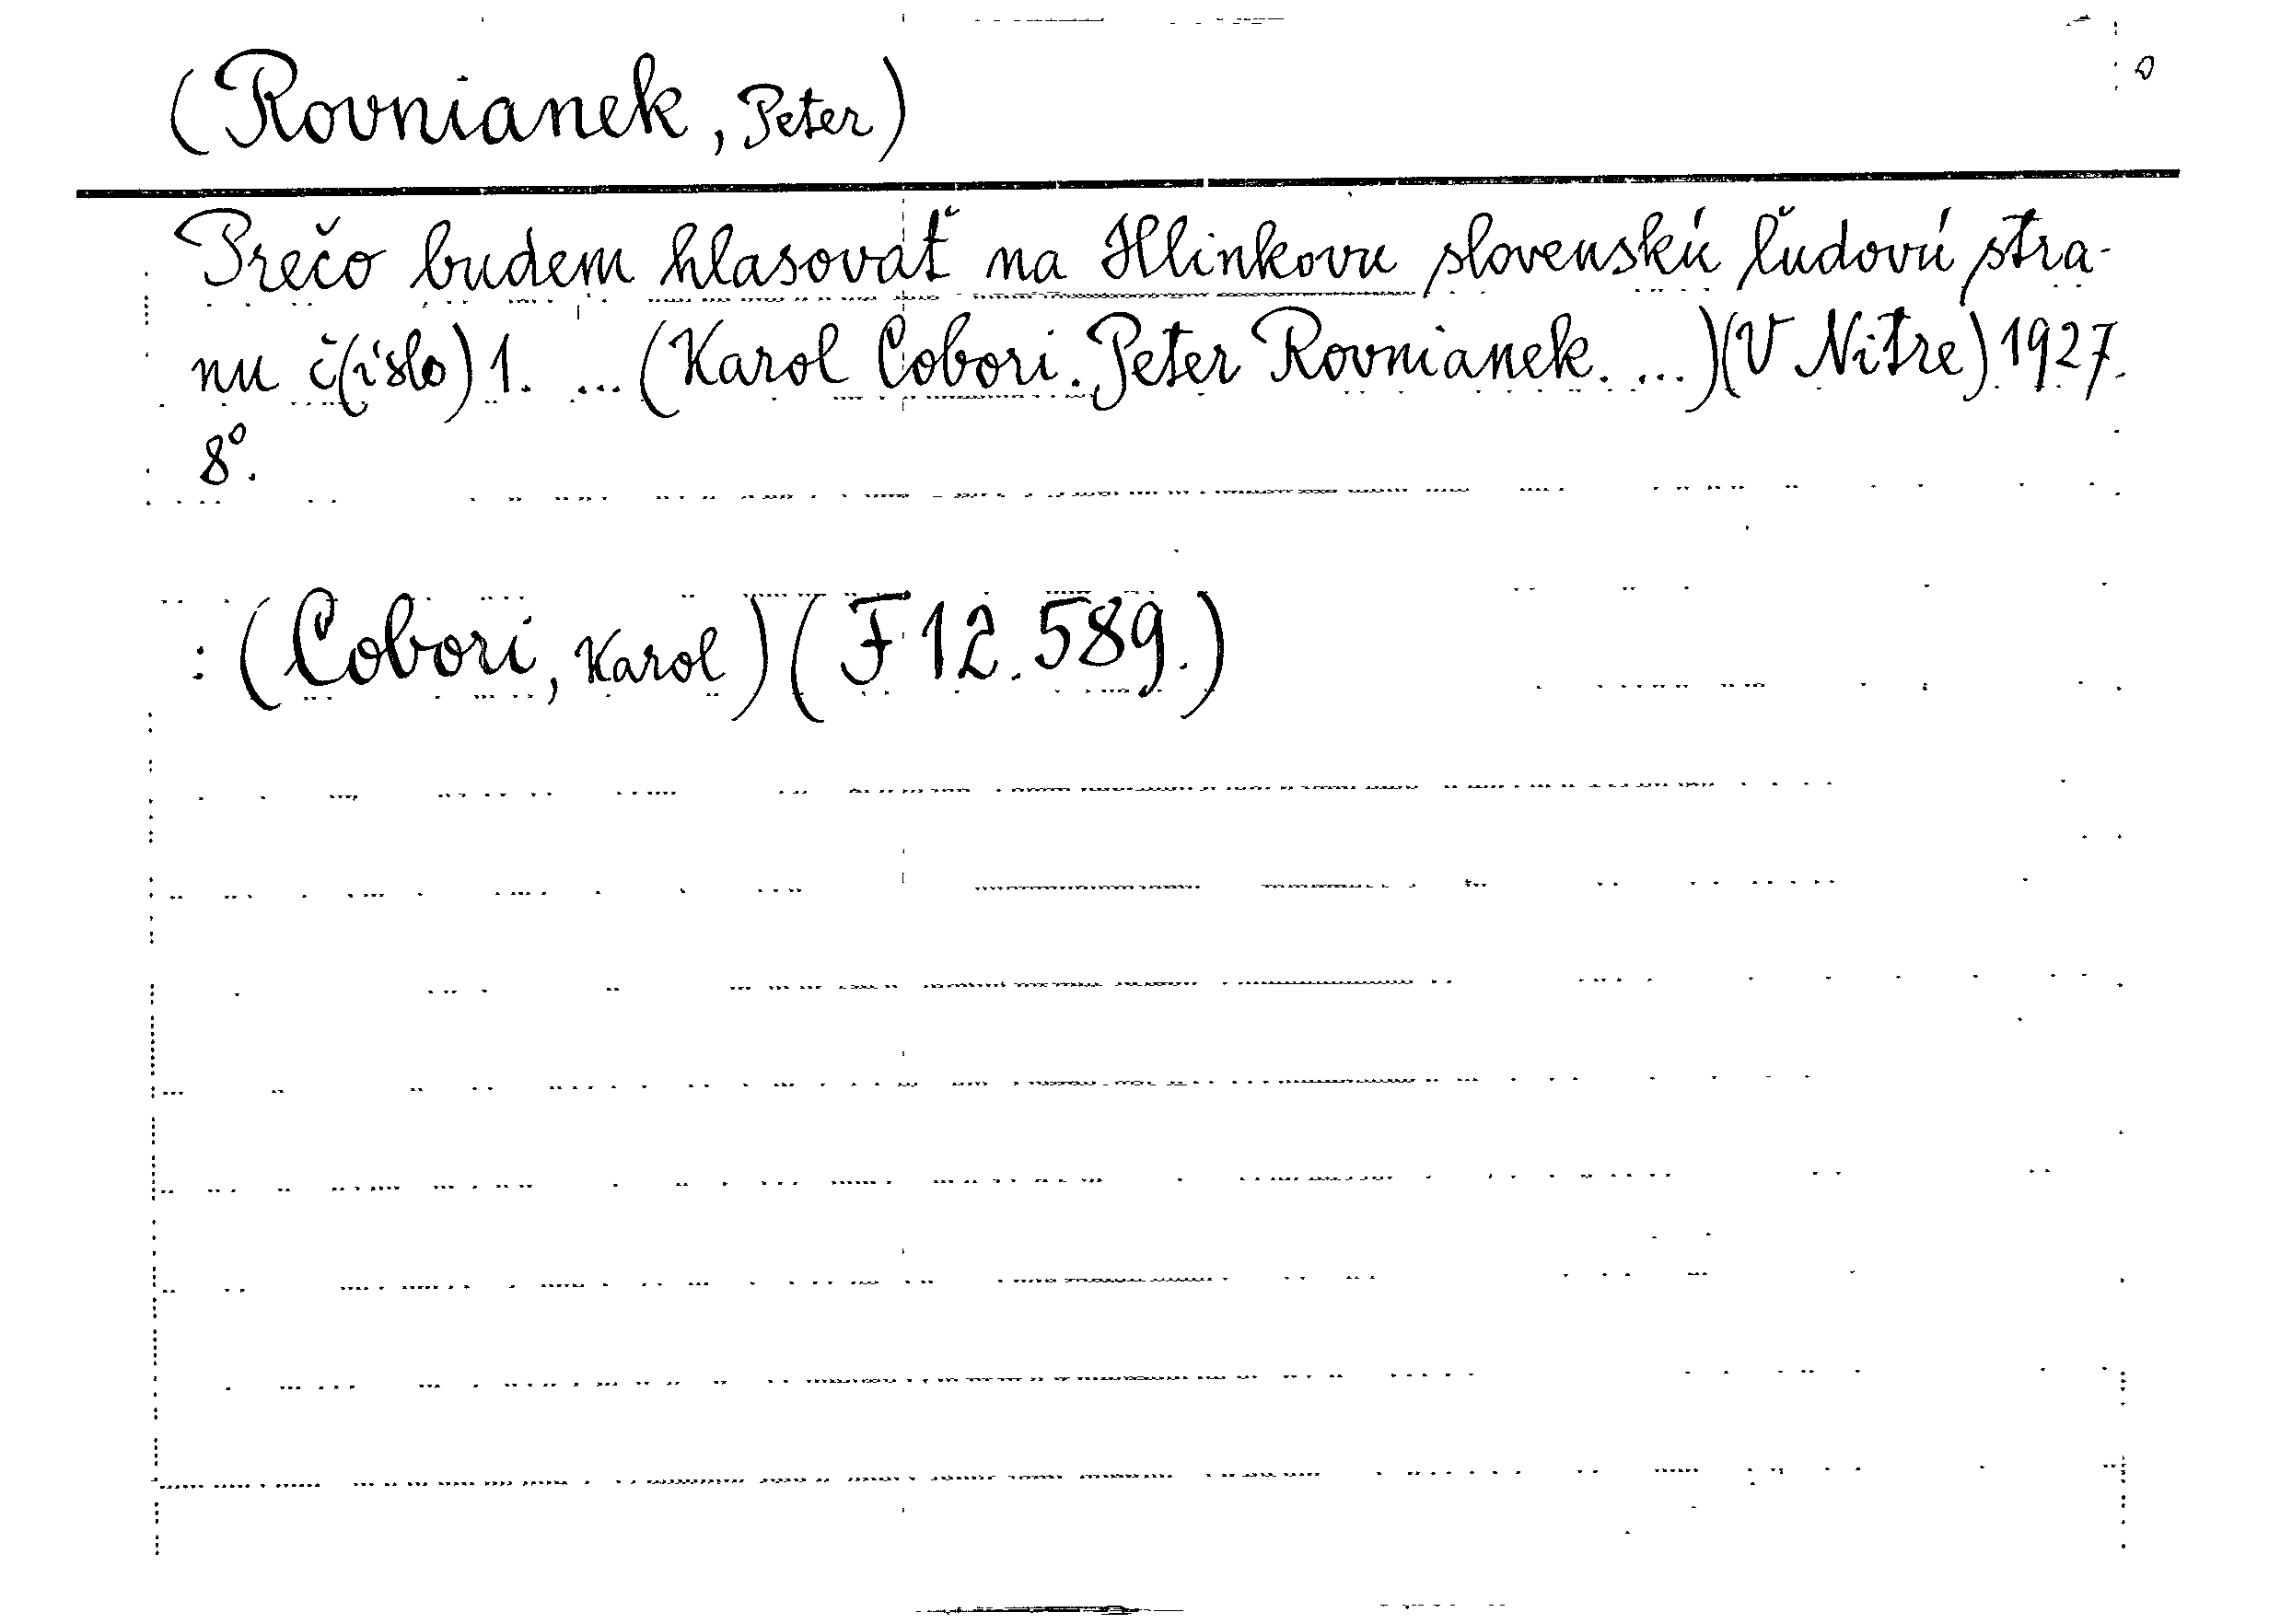 (Rovnianek, Peter)
Prečo budem hlasovať na Hlinkovu slovenskú ľudovú stra-
nu č(íslo) 1. ... (Karol Cobori. Peter Rovnianek. ...)(V Nitre) 1927.
8°.
: (Cobori, Karol) (F 12.589.)